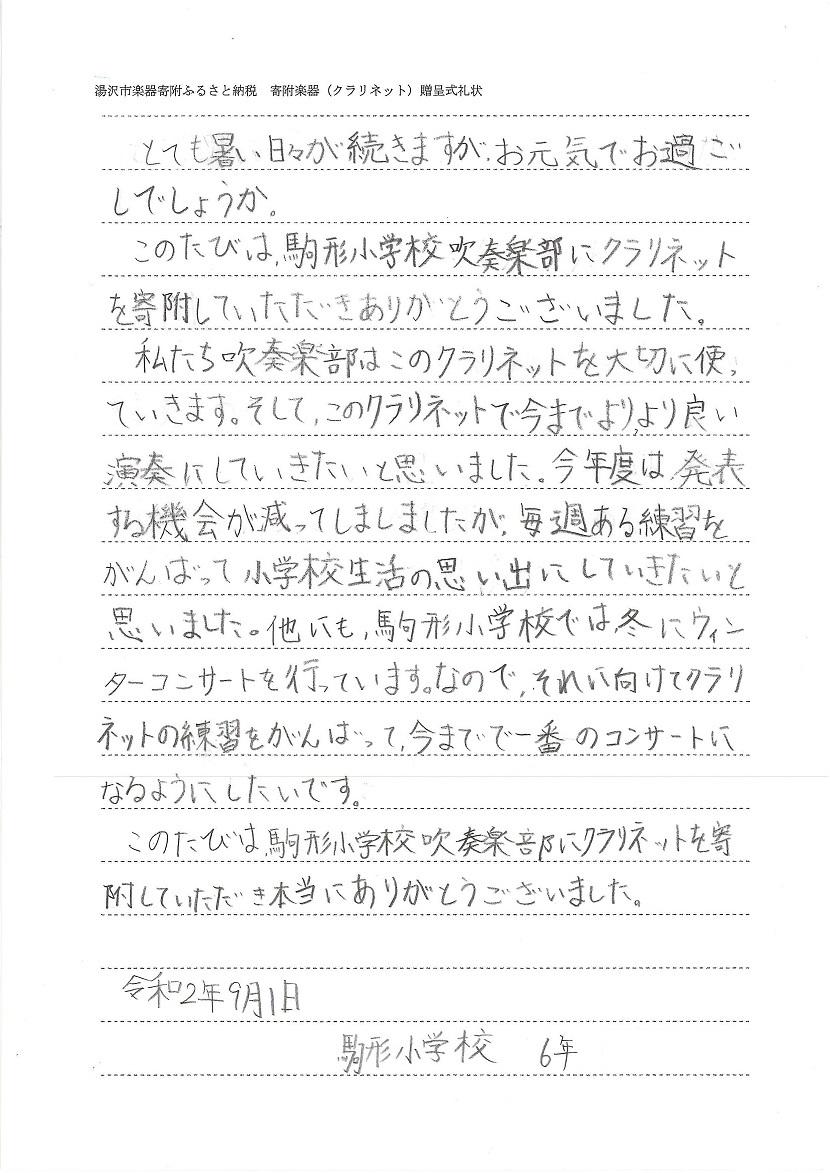 湯沢市楽器寄附ふるさと納税　寄附楽器（クラリネット）贈呈式礼状
とても暑い日々が続きますが、お元気でお過ご
しでしょうか。
このたびは、駒形小学校吹奏楽部にクラリネット
を寄附していただきありがとうございました。
私たち吹奏楽部はこのクラリネットを大切に使っ
ていきます。そして、このクラリネットで今までより、より良い
演奏にしていきたいと思いました。今年度は発表
する機会が減ってしましましたが、毎週ある練習を
がんばって小学校生活の思い出にしていきたいと
思いました。他にも、駒形小学校では、冬にウィン
ターコンサートを行っています。なので、それに向けてクラリ
ネットの練習をがんばって、今までで一番のコンサートに
なるようにしたいです。
このたびは、駒形小学校吹奏楽部にクラリネットを寄
附していただき本当にありがとうございました。
令和2年9月1日
駒形小学校　6年